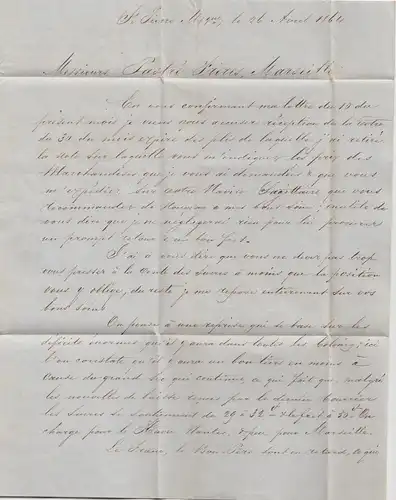 St Pierre Mque, le 26 Avril 1864
Messieurs Pastré Frères, Marseille
En vous confirmant ma lettre du 10 du
présent mois je viens vous accuser réception de la votre
du 30 du mois expiré du pli de laquelle j'ai retiré
la note sur laquelle vous m'indiquez les prix des
Marchandises que je vous ai demandées & que vous
m'expédiez sur votre Navire Sagittaire que vous
recommandez de nouveau à mes bons soins, inutile de
vous dire que je ne négligerai rien pour lui procurer
un prompt retour & un bon fret.
J'ai à vous dire que vous ne devez pas trop
vous presser à la vente des sucres à moins que la position
vous y oblige, du reste je me repose entièrement sur vos
bons soins.
On pense à une reprise qui se base sur les
déficits énormes qu'il y aura dans toutes les Colonies; ici
l'on constate qu'il y aura un bon tiers en moins à
cause du grand sec qui continue, ce qui fait que, malgré
les nouvelles de baisse venues par le dernier courrier
les sucres se soutiennent de 29 à 32 & le fret à 80
charge pour le Havre Nantes, & pour Marseille.
Le Franc, le Bon Père sont en retard, ce qui